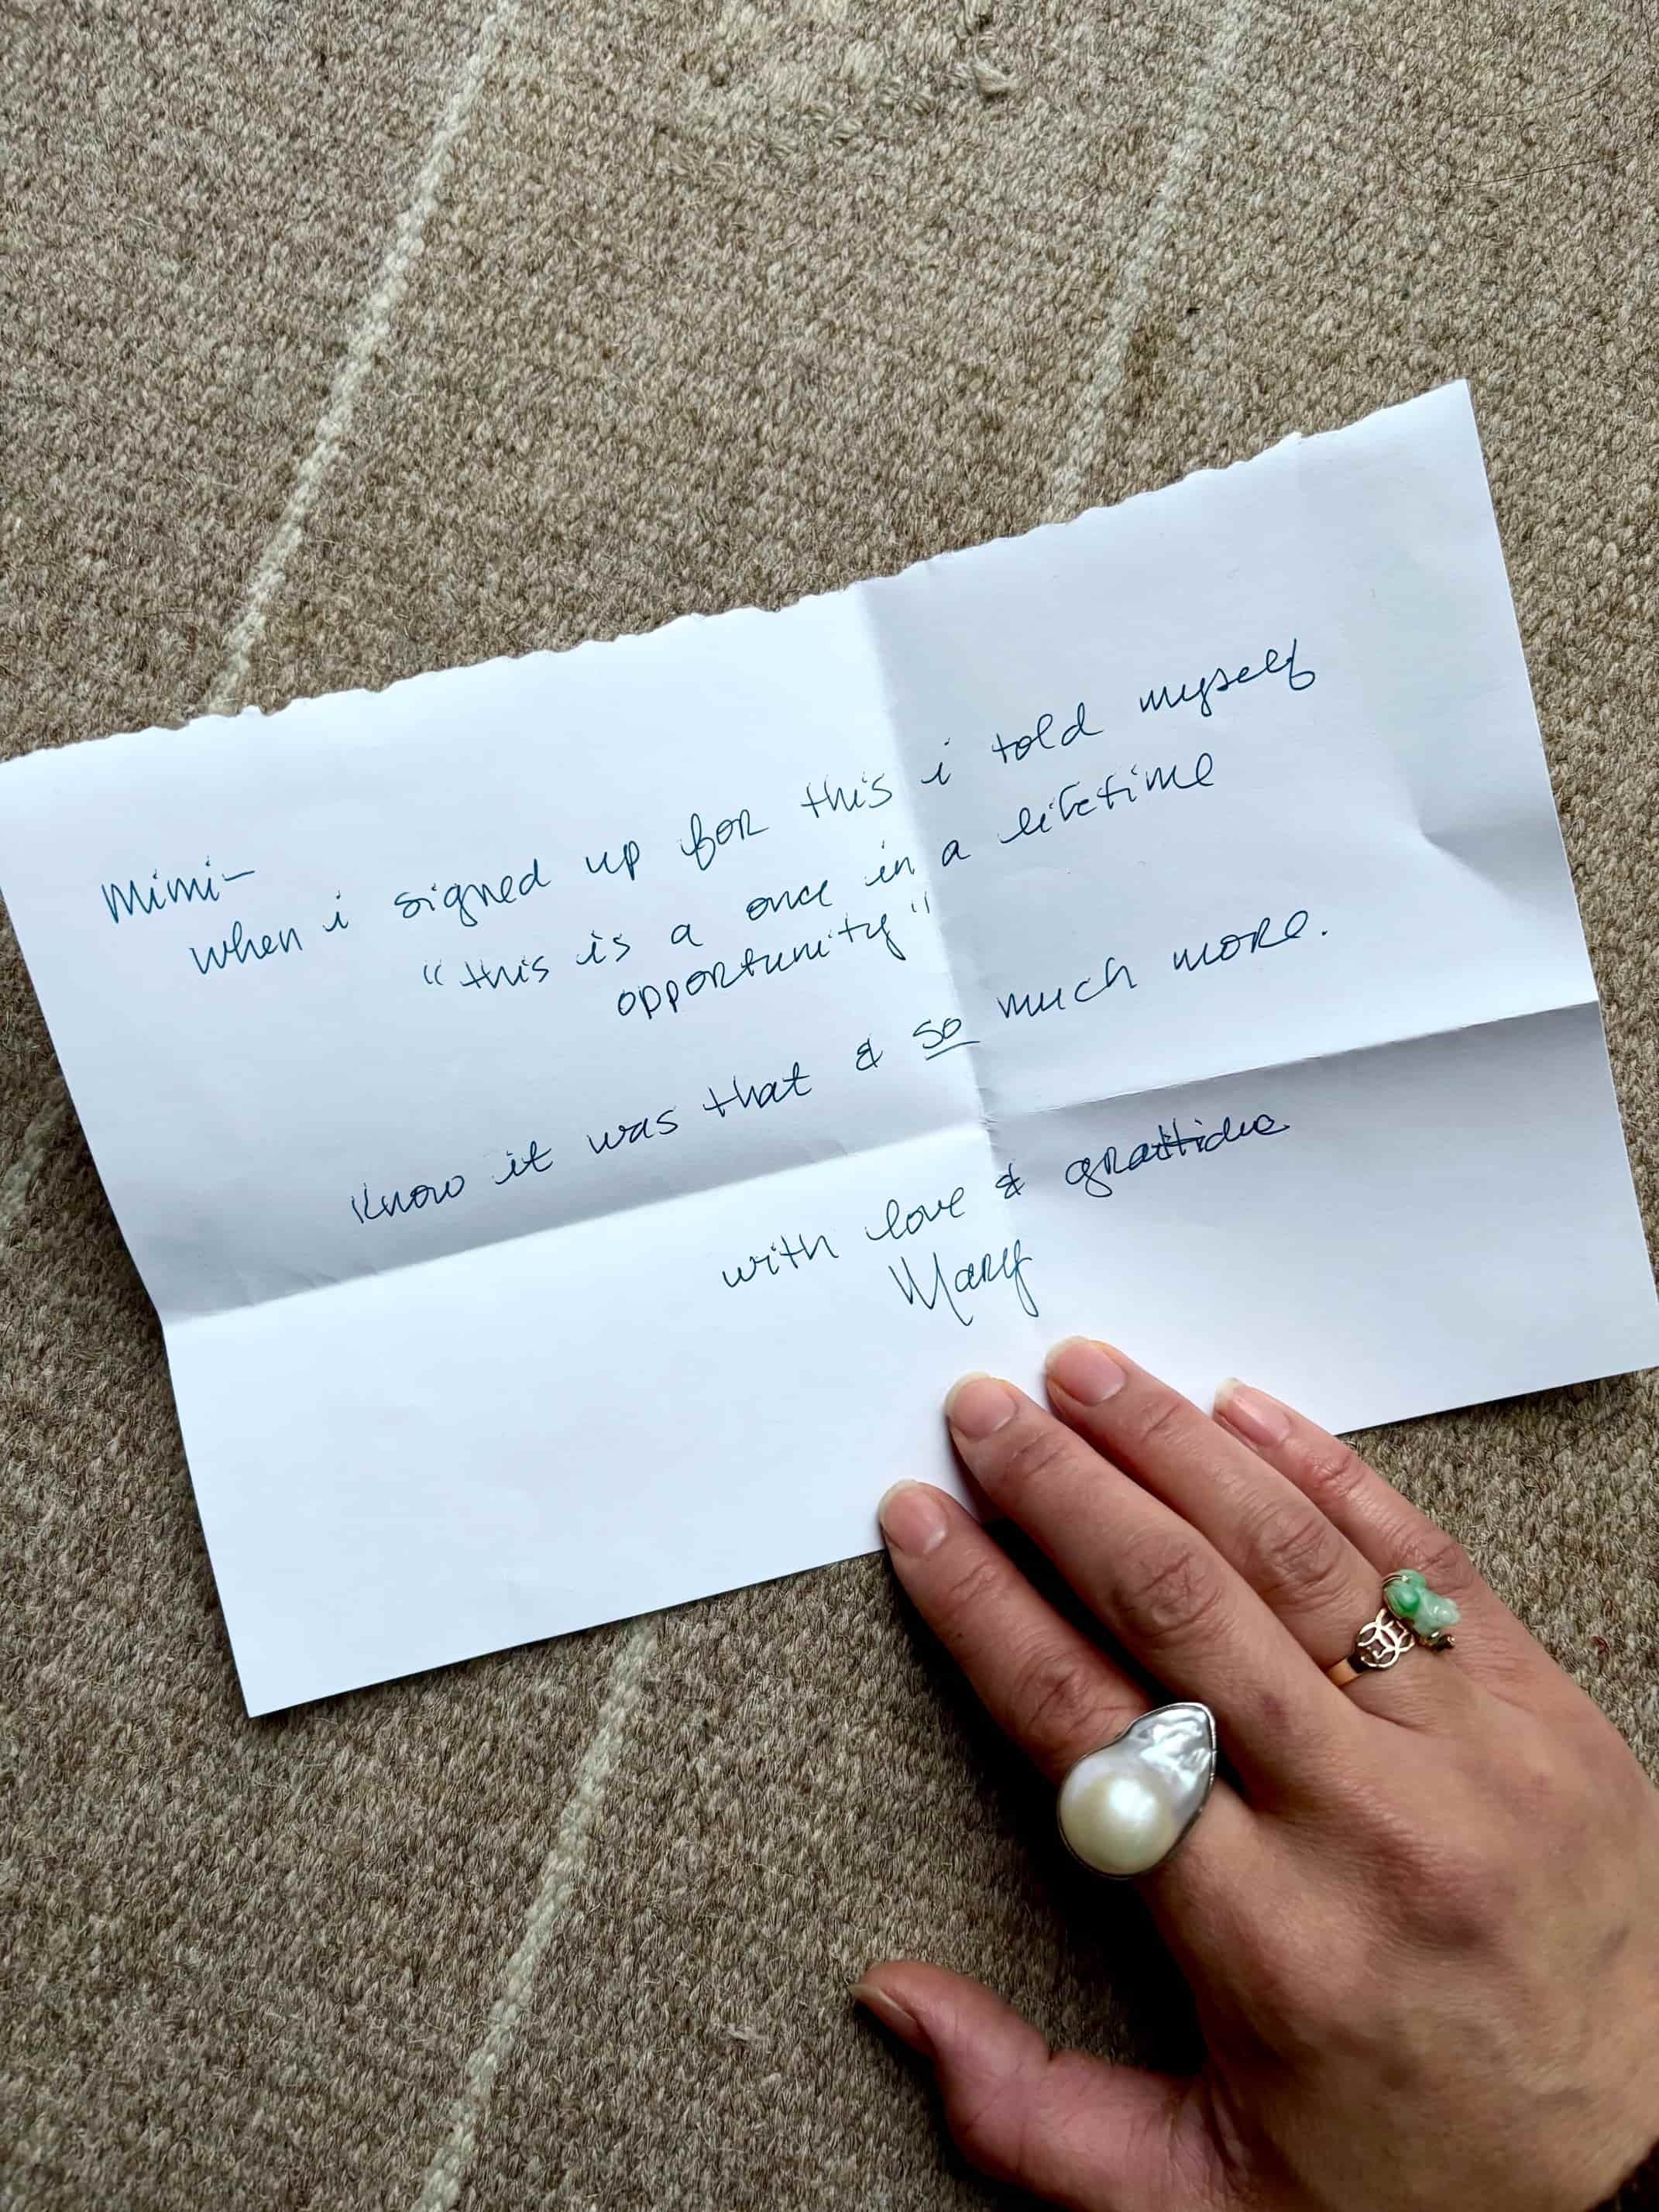 Mimi-
when i signed up for this i told myself
"this is a once in a lifetime
opportunity"
Know it was that & so much more.
with love & gratitude
Mary